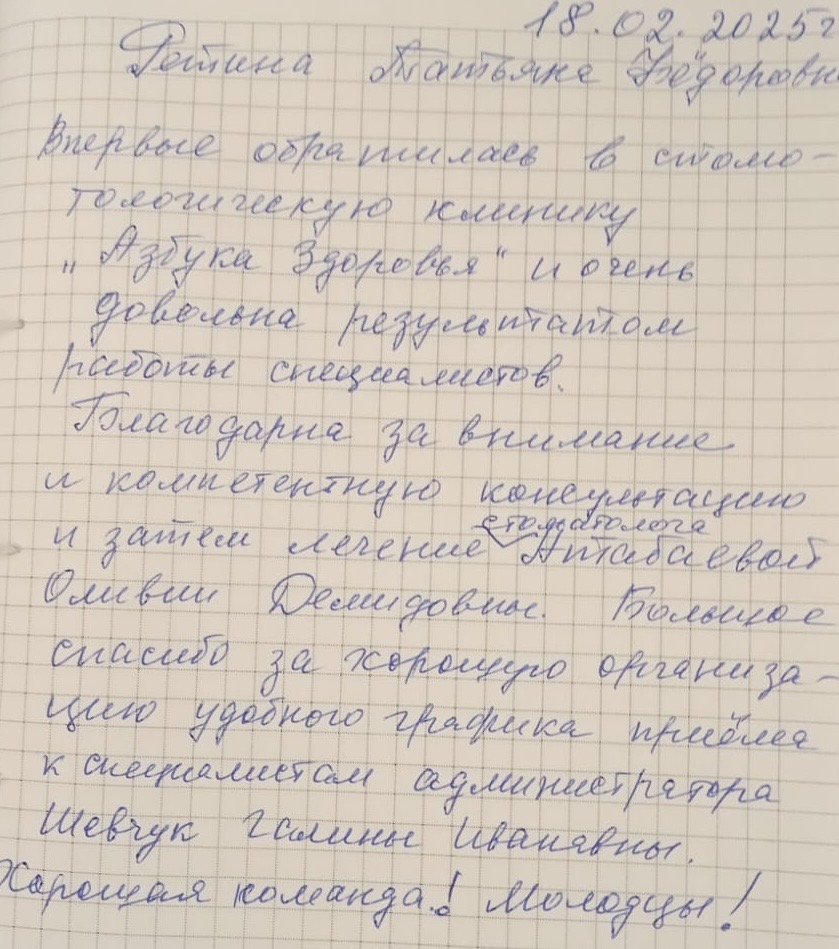 18.02.2025г
Фетина Татьяна Фёдоровн
Впервые обратилась в стомо-
тологическую клинику
„Азбука Здоровья" и очень
довольна результатом
работы специалистов.
Благодарна за внимание
и компетентную консультацию
стоматолога
и затем лечение Алтабаевой
Оливии Демидовны. Большое
спасибо за хорошую организа-
цию удобного графика приёма
к специалистам администратора
Шевчук Галины Иванавны.
Хорошая команда! Молодцы!